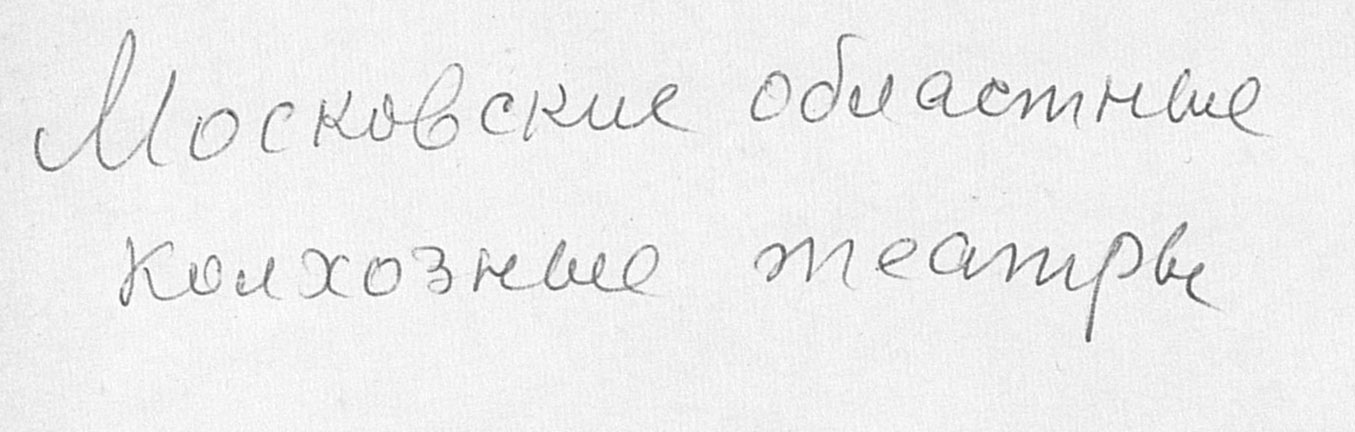 Московские областные
колхозные театры